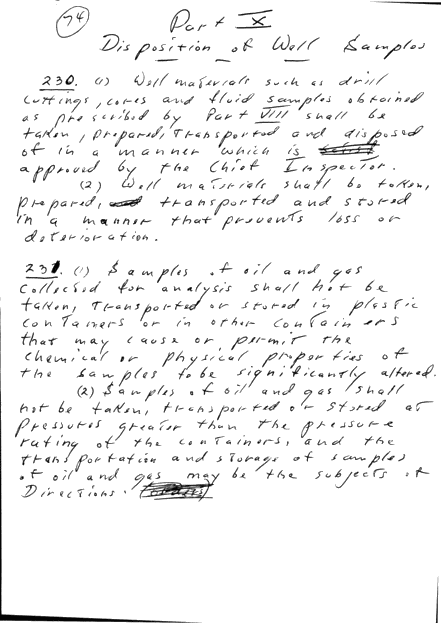 74
Part X
Disposition of Well Samples
230. (1) Well materials such as drill
cuttings, cores and fluid samples obtained
as prescribed by Part VIII shall be
taken, prepared, transported and disposed
of in a manner which is
approved by the Chief Inspector.
(2) Well materials shall be taken,
prepared, transported and stored
in a manner that prevents loss or
deterioration.
231. (1) Samples of oil and gas
collected for analysis shall not be
taken, transported or stored in plastic
containers or in other containers
that may cause or permit the
chemical or physical properties of
the samples to be significantly altered.
(2) Samples of oil and gas shall
not be taken, transported or stored at
pressures greater than the pressure
rating of the containers, and the
transportation and storage of samples
of oil and gas may be the subjects of
Directions.